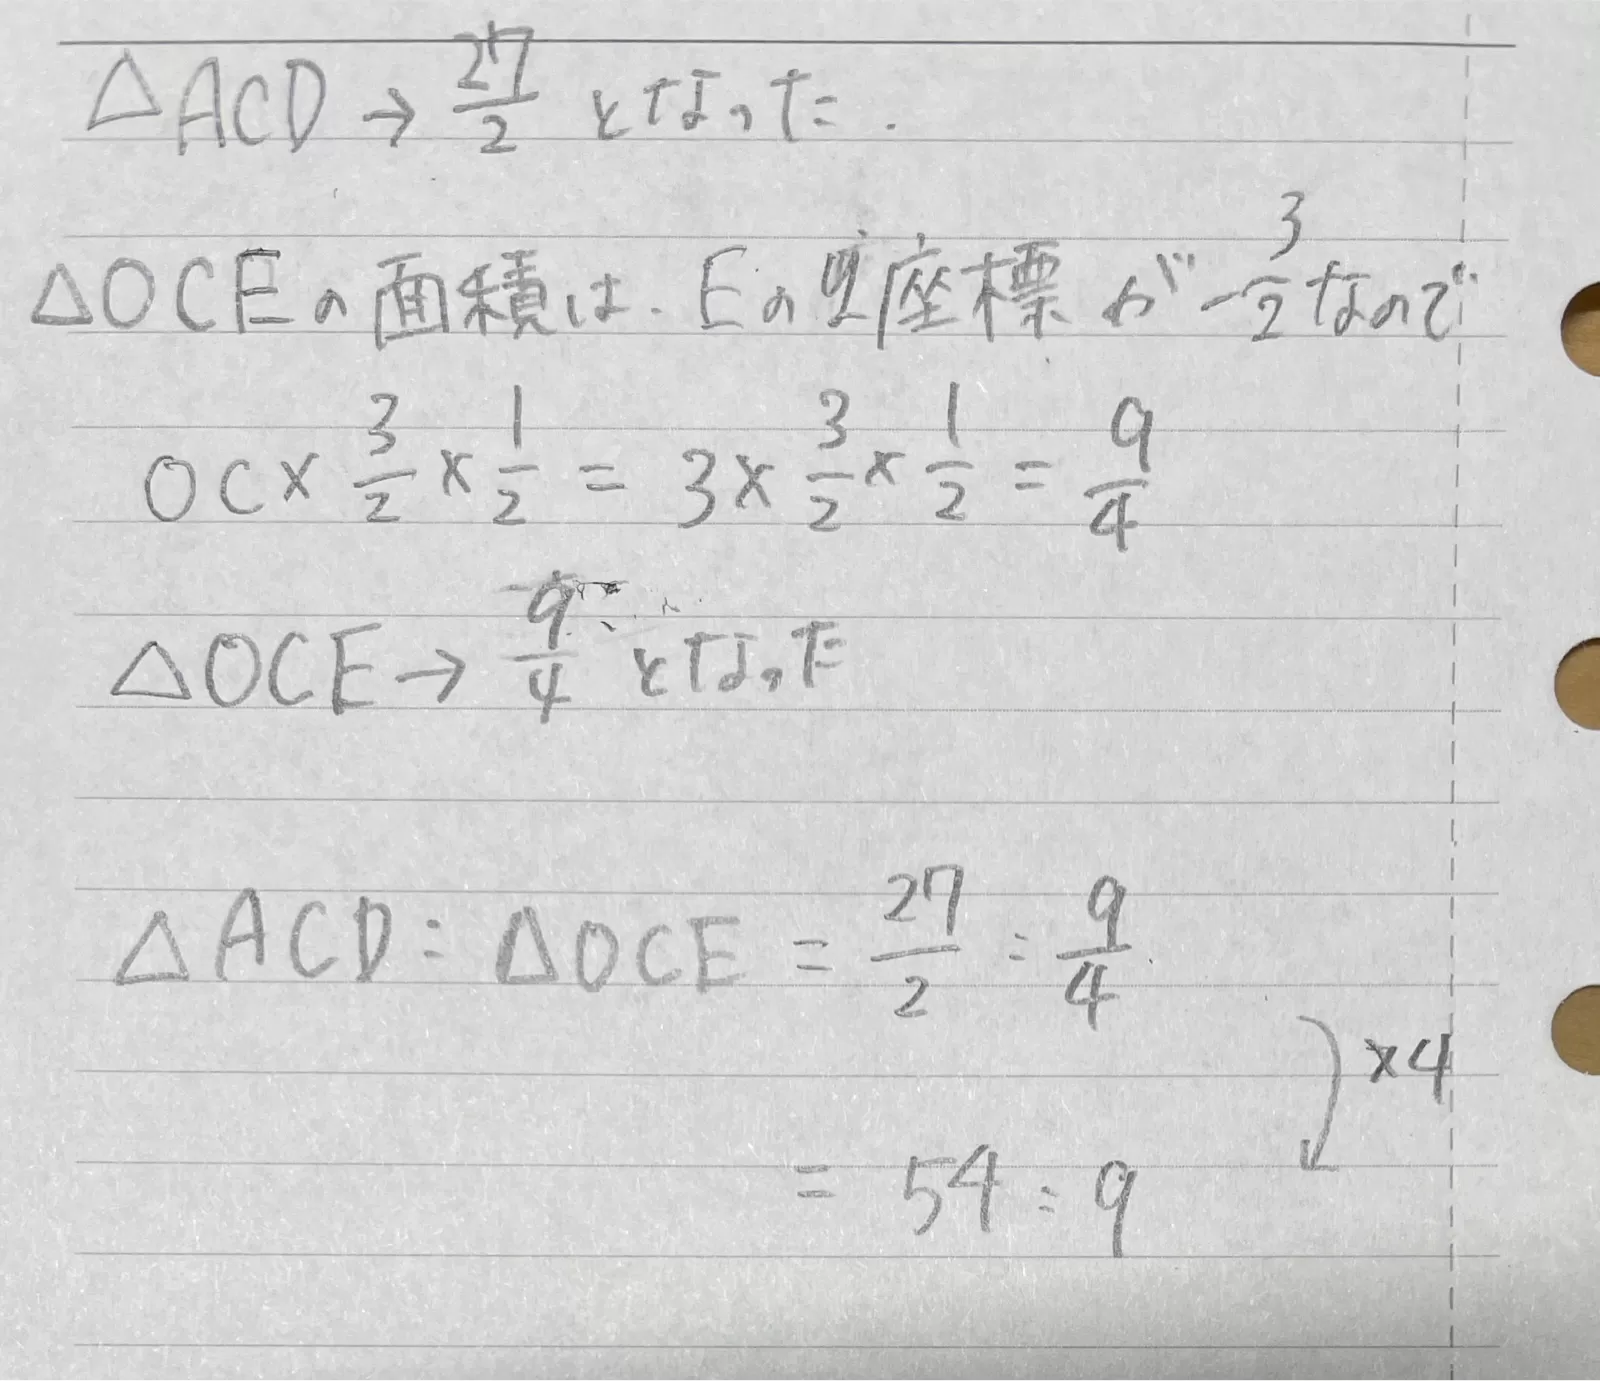 △ACD → 27/2 となった.
△OCEの面積は. Eの座標が -3/2 なので
OC × 3/2 × 1/2 = 3 × 3/2 × 1/2 = 9/4
△OCE → 9/4 となった
△ACD : △OCE = 27/2 : 9/4
×4
= 54 : 9